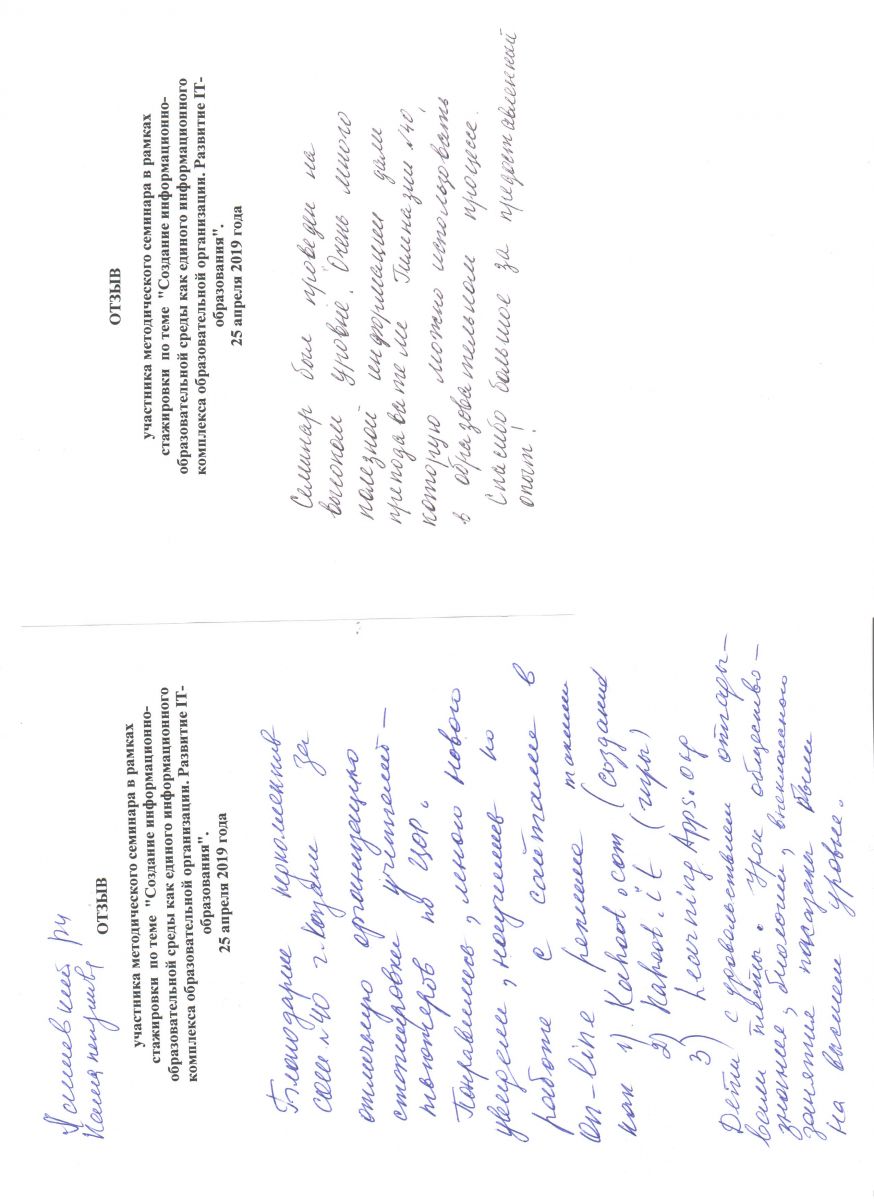 ОТЗЫВ
участника методического семинара в рамках
стажировки по теме "Создание информационно-
образовательной среды как единого информационного
комплекса образовательной организации. Развитие IT-
образования".
25 апреля 2019 года
Благодарим коллектив
сош №40 г. Казани за
отличную организацию
стажировки учителей-
тьюторов по ЦОР.
Понравилось, много нового
увидели, научились по
работе с сайтами в
On-line режиме такими
как 1) Kahoot.com (создание
2) Kahoot.it (игры)
3) Learning Apps.org
Дети с удовольствием отгады-
вали тесты. Урок общество-
знания, биологии, внеклассного
занятие показали были
на высшем уровне.
ОТЗЫВ
участника методического семинара в рамках
стажировки по теме "Создание информационно-
образовательной среды как единого информационного
комплекса образовательной организации. Развитие IT-
образования".
25 апреля 2019 года
Семинар был проведен на
высоком уровне. Очень много
полезной информации дали
преподаватели Гимназии №40,
которую можно использовать
в образовательном процессе.
Спасибо большое за предоставленный
опыт!